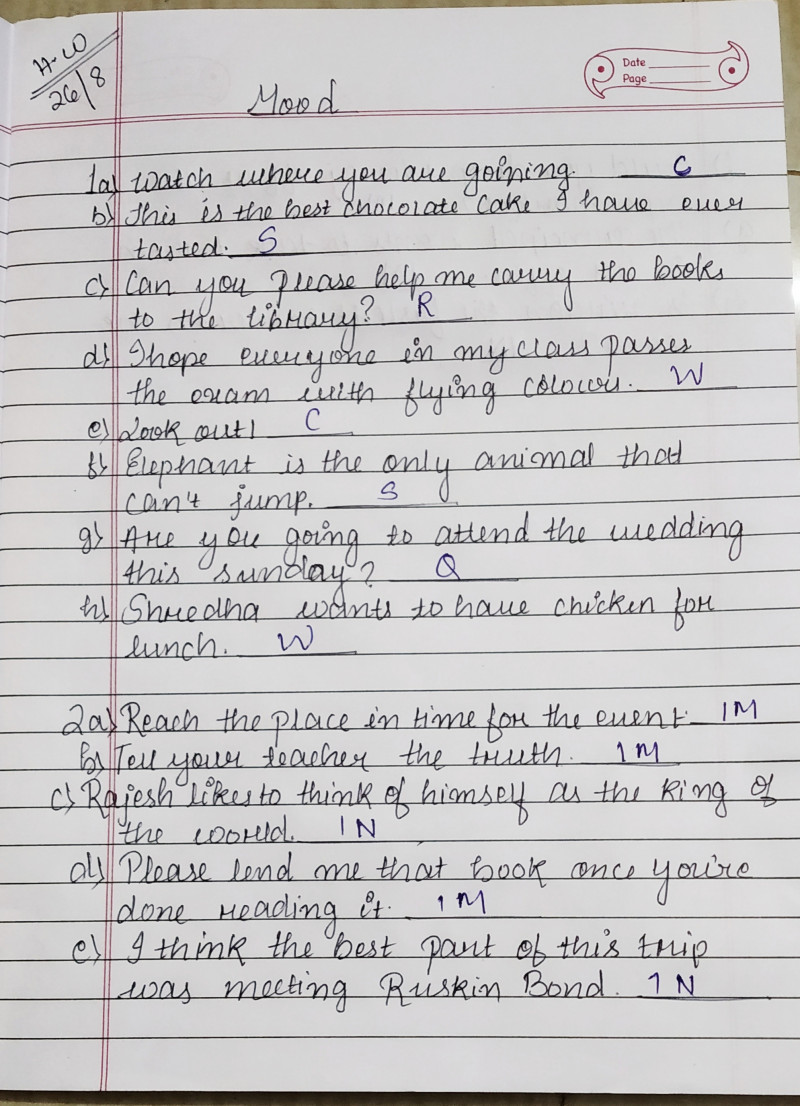 H.W
26/8
Date
Page
Mood
1a) Watch where you are going. C
b) This is the best chocolate cake I have ever
tasted. S
c) Can you please help me carry the books
to the library? R
d) I hope everyone in my class passes
the exam with flying colours. W
e) Look out! C
f) Elephant is the only animal that
can't jump. S
g) Are you going to attend the wedding
this sunday? Q
h) Shredha wants to have chicken for
lunch. W
2a) Reach the place in time for the event. IM
b) Tell your teacher the truth. IM
c) Rajesh likes to think of himself as the king of
the world. IN
d) Please lend me that book once you're
done reading it. IM
e) I think the best part of this trip
was meeting Ruskin Bond. IN